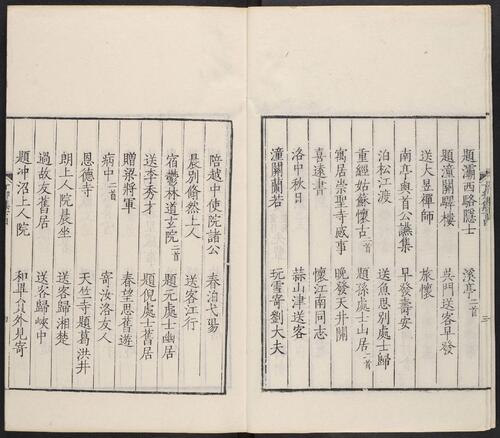 題灞西駱隱士 溪亭二首
題潼關驛樓 吳門送客早發
送大昱禪師 旅懷
南亭與首公讌集 早發壽安
泊松江渡 送魚思別處士歸
重經姑蘇懷古二首 題孫處士山居二首
寓居崇聖寺感事 晚發天井關
喜遠書 懷江南同志
洛中秋日 蒜山津送客
潼關蘭若 玩雪寄劉大夫
陪越中使院諸公 春泊弋陽
晨別翛然上人 送客江行
宿鬱林道玄院二首 題元處士幽居
送李秀才 題倪處士舊居
贈梁將軍 春望思舊遊
病中二首 寄汝洛友人
恩德寺 天竺寺題葛洪井
朗上人院晨坐 送客歸湘楚
過故友舊居 送客歸峽中
題冲沼上人院 和畢員外見寄